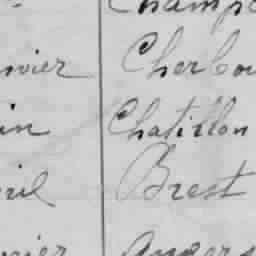 Champ
nvier Cherbou
in Chatillon
ril Brest
vrier Angers